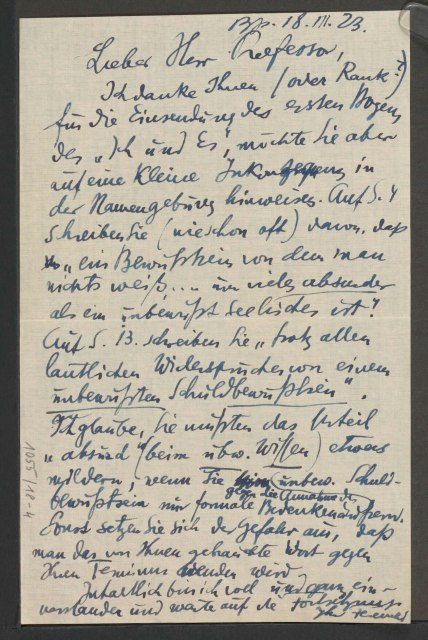 Bp. 18. III. 23.
Lieber Herr Professor,
Ich danke Ihnen (oder Rank?)
für die Einsendung des ersten Bogens
des „Ich und Es“, möchte Sie aber
auf eine kleine Inkongruenz in
der Namengebung hinweisen. Auf S. 4
schreiben Sie (wie schon oft) davon, daß
„ein Bewußtsein von dem man
nichts weiß... um vieles absurder
als ein unbewußt Seelisches ist“.
Auf S. 13. schreiben Sie „trotz allen
lautlichen Widerspruches von einem
unbewußten Schuldbewußtsein“.
Ich glaube, Sie müßten das Urteil
„absurd“ (beim ubw. Wissen) etwas
mildern, wenn Sie unbew. Schuld-
gegen die Annahme des
bewußtsein nur formale Bedenken äußern.
Sonst setzen Sie sich der Gefahr aus, daß
man das von Ihnen gebrauchte Wort gegen
Ihren Terminus wenden wird.
Inhaltlich bin ich voll und ganz ein-
verstanden und warte auf die Fortsetzung
Ihr
1055/18-4